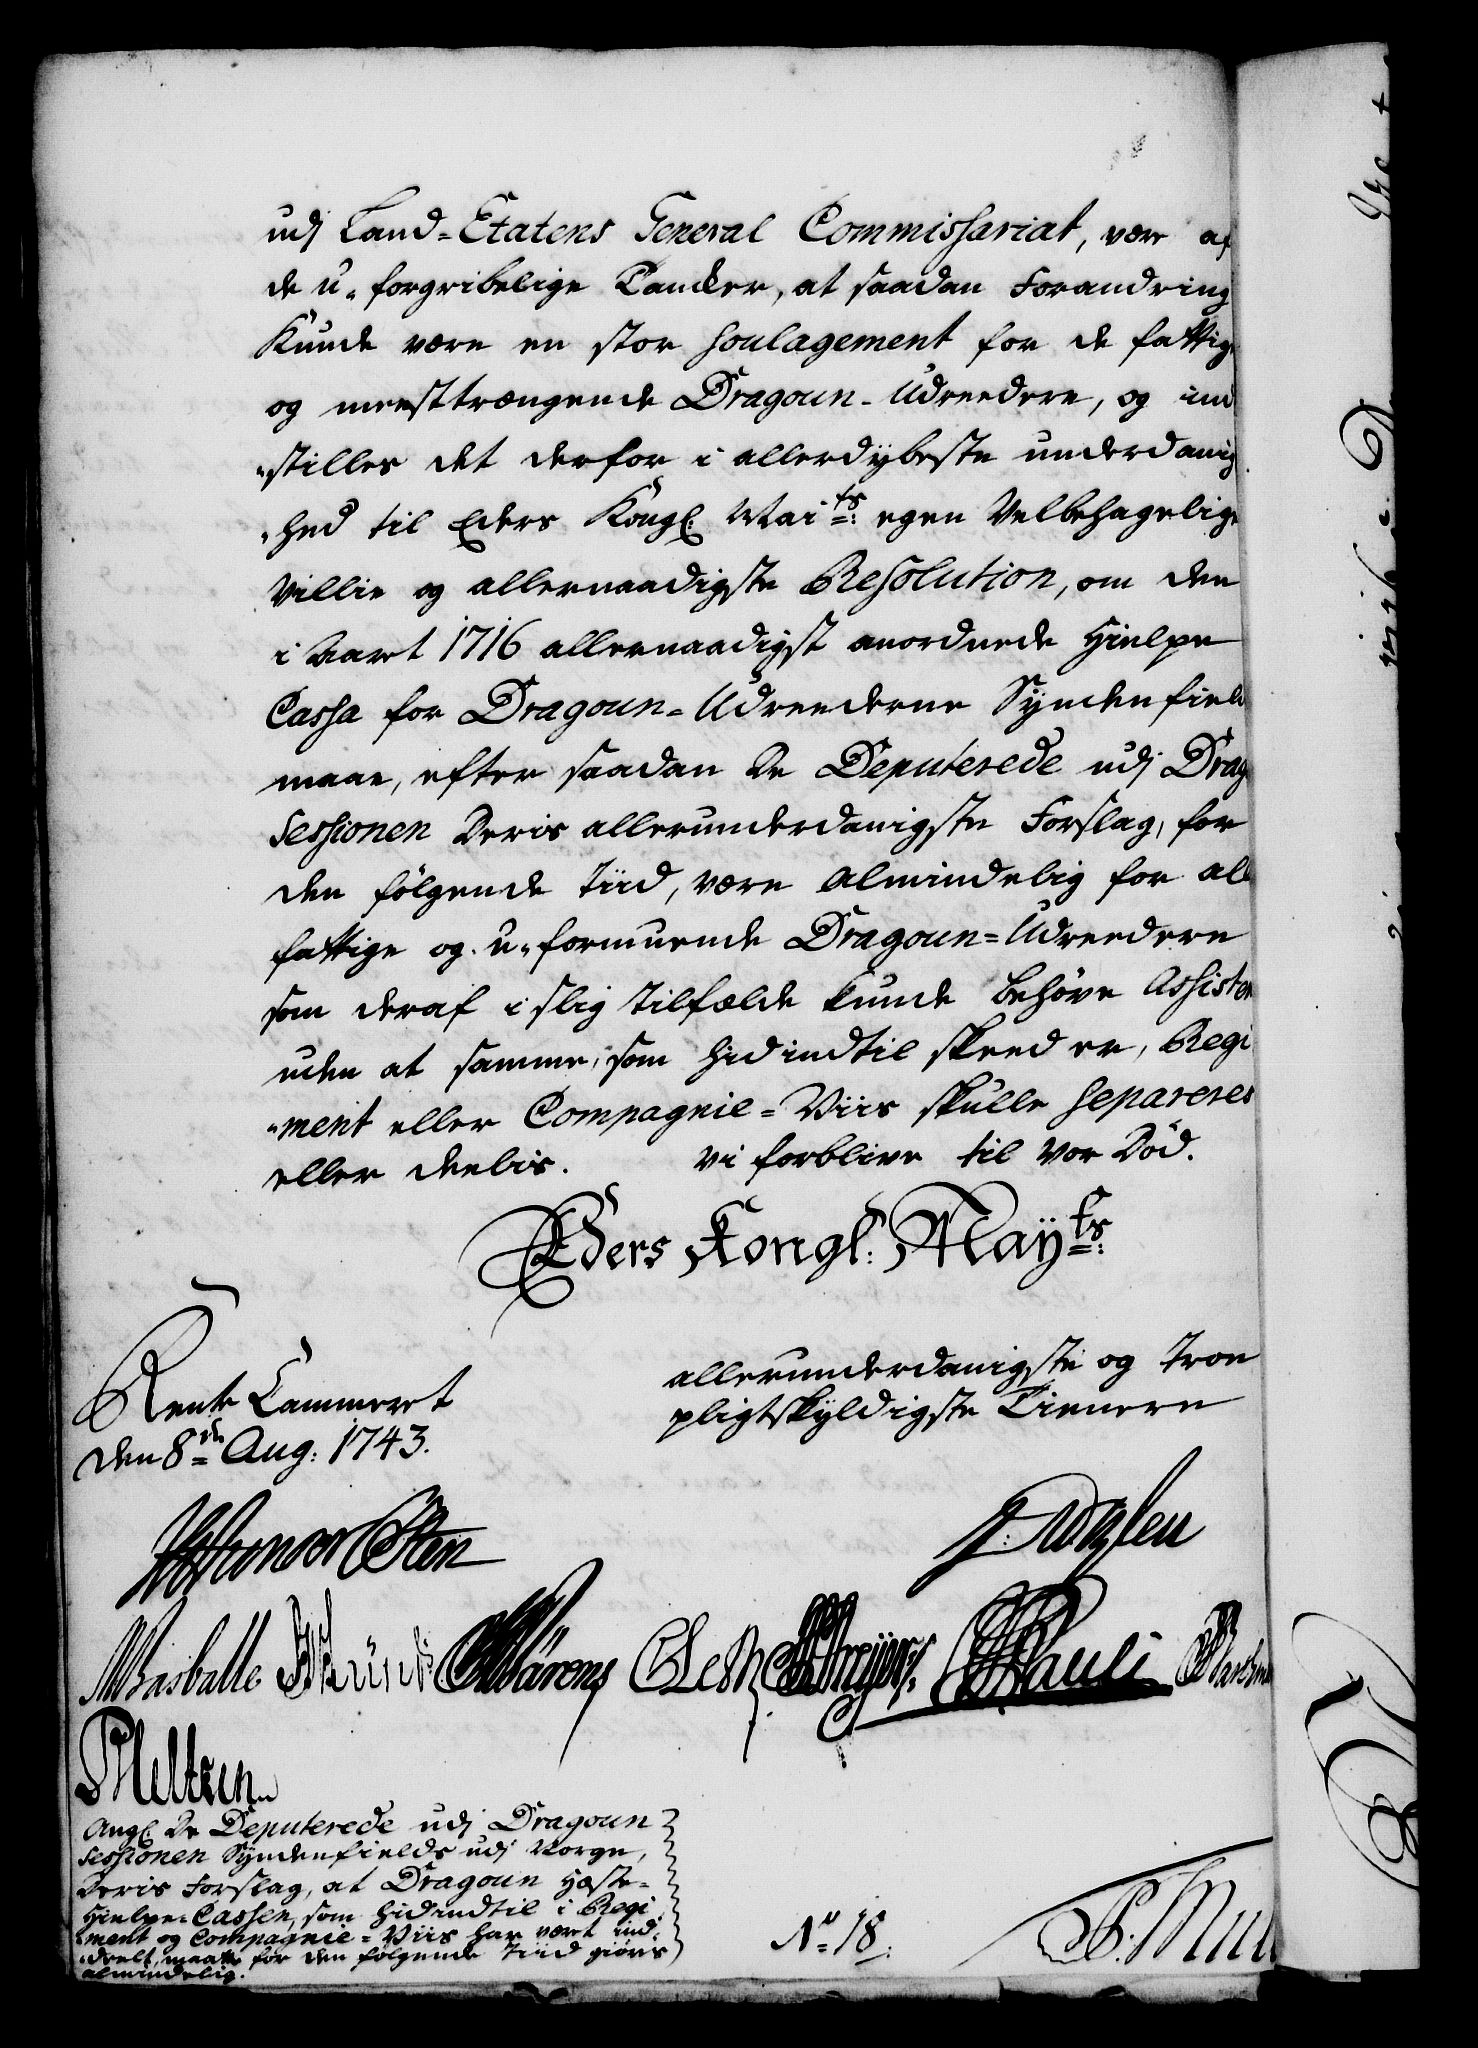 udj Land-Etatens General Commissariat, være af
de u-forgribelige Tancker, at saadan Forandring
Kunde være en stor soulagement for de fattig
og meesttrængende Dragoun-Udreedere, og ind
-stilles det derfor i allerdybeste underdanig
-hed til Eders Kongl. Maits: egen Velbehagelige
Villie og allernaadigste Resolution, om den
i Aaret 1716 allernaadigst anordnede Hielpe
Cassa for Dragoun-Udreederne Syndenfield
maae, efter saadan De Deputerede udj Drag
Sessionen Deris allerunderdanigste Forslag, for
den følgende Tiid, være Almindelig for all
fattige og u-formuende Dragoun-Udreedere
som deraf i slig Tilfælde kunde behøve Assisten
uden at samme, som hidindtil skeed er, Regi
-ment eller Compagnie-Viis skulle separeres
eller deelis. Vi forblive til Vor Død.
Eders Kongl: Mayts:
allerunderdanigste og Troe
pligtskyldigste Tienere
Rente Cammeret
den 8de Aug: 1743.
Pauli
Meltzen
Angl. De Deputerede udj Dragoun
Sessionen Syndenfields udj Norge,
Deris Forslag, at Dragoun Heste-
Hielpe-Cassen, som hidindtil i Regi
-ment og Compagnie-Viis har været ind
-deelt, maatte for den følgende Tiid giøris
almindelig.
No 18.